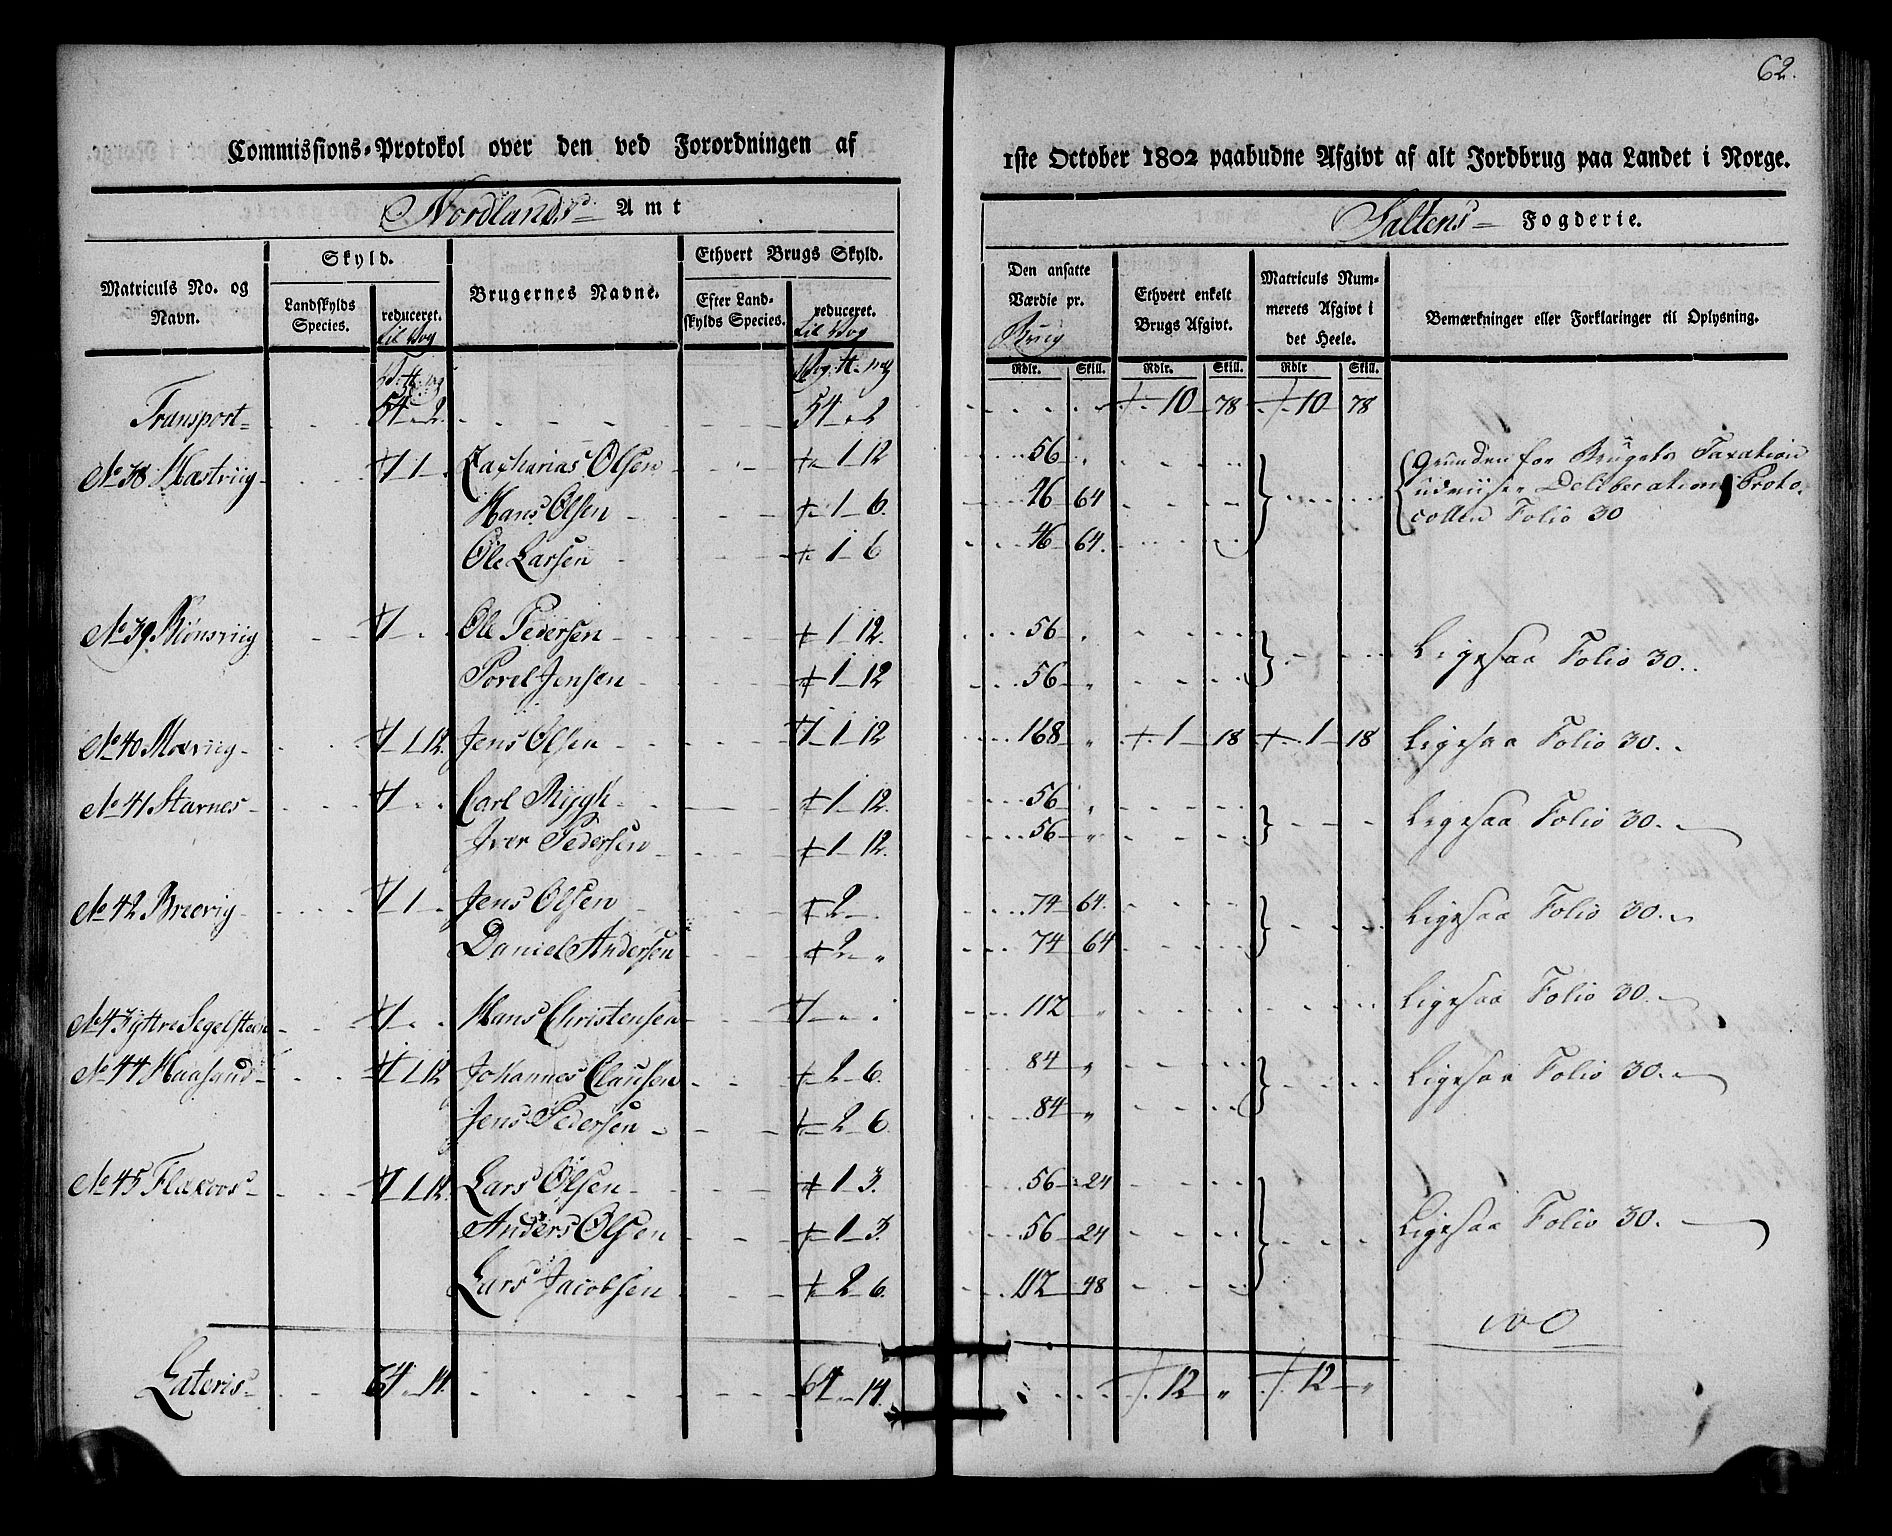 62.
Commissions-Protokol over den ved Forordningen af
1ste October 1802 paabudne Afgivt af alt Jordbrug paa Landet i Norge.
Nordlands Amt
Saltens Fogderie.
Matriculs No. og Navn.
Skyld.
Landskylds Species.
reduceret. til Vog
Brugernes Navne.
Ethvert Brugs Skyld.
Efter Landskylds Species.
reduceret. til Vog
Den ansatte Værdie pr. Brug
Ethvert enkelt Brugs Afgivt.
Matriculs Nummerets Afgivt i det Heele.
Bemærkninger eller Forklaringer til Oplysning.
Rdlr. Skill. Rdlr. Skill. Rdlr Skill.
Transport 54 - 2. 54 - 2 10 78 10 78
No 38 1 Zacharias Olsen 1 12 56 Grunden for Brugets Taxation
Hans Olsen 1 6. 46 64 udviiser Deliberations Proto-
Ole Larsen 1 6 46 64. collen Folio 30
No 39 Ole Pedersen 1 12. 56 Ligesaa Folio 30.
Jensen 1 12 56
No 40 1 12. Jens Olsen 1 12 168 1 18 1 18 Ligesaa Folio 30.
No 41 Starnes Carl 1 12. 56 Ligesaa Folio 30.
Iver Pedersen 1 12. 56
No 42 Brevig 1 Jens Olsen 2 74 64. Ligesaa Folio 30.
Daniel Andersen 2 " 74 64
No 43 Yttre Segelsteen Hans Christensen 112 " Ligesaa Folio 30.
No 44 Haasand 1 12 Johannes Clausen 2 6. 84 " Ligesaa Folio 30.
Jens Pedersen 2 6. 84 "
No 45 1 12. Lars Olsen 1 3. 56 24
Anders Olsen 1 3. 56 24 Ligesaa Folio 30.
Lars Jacobsen 2 6. 112 48
Lateris 64 14. 64 14. 12 " 12 "